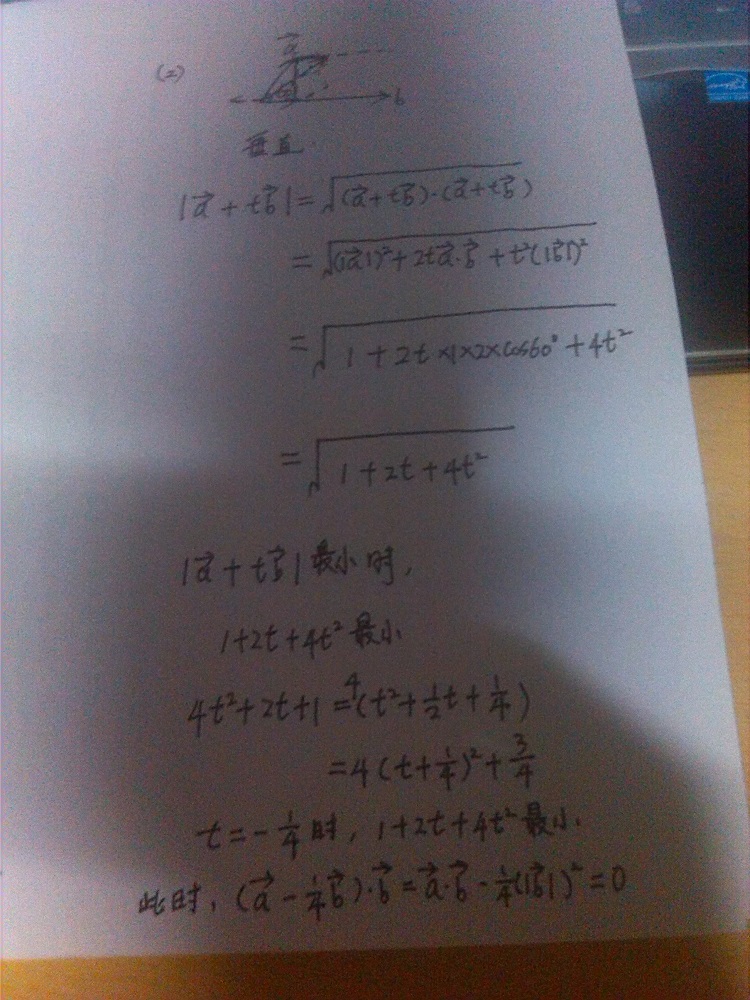 (2)
a⃗
b
垂直.
|a⃗ + tb⃗| = √((a⃗ + tb⃗)·(a⃗ + tb⃗))
= √((|a⃗|)² + 2ta⃗·b⃗ + t²(|b⃗|)²)
= √(1 + 2t×1×2×cos60° + 4t²)
= √(1 + 2t + 4t²)
|a⃗ + tb⃗| 最小时,
1+2t+4t² 最小
4t²+2t+1 = 4(t² + ½t + ¼)
= 4(t + ¼)² + ¾
t = -¼ 时, 1+2t+4t² 最小.
此时, (a⃗ - ¼b⃗)·b⃗ = a⃗·b⃗ - ¼(|b⃗|)² = 0